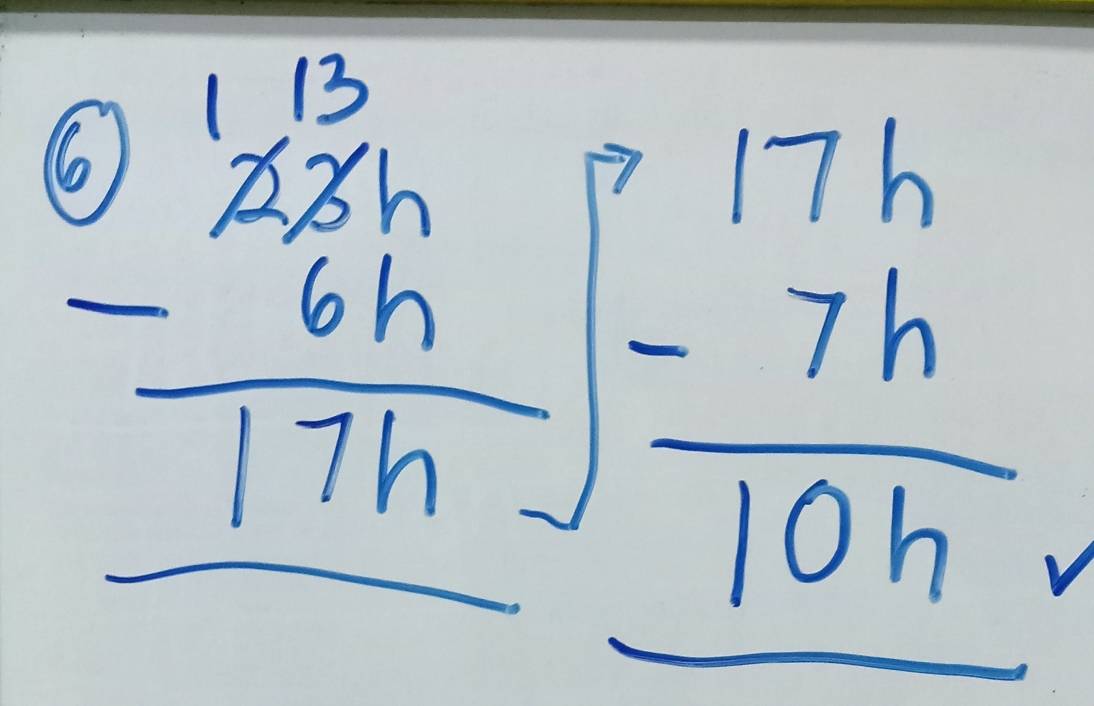 ⑥
1 13
23h
- 6h
17h
→ 17h
- 7h
10h ✓